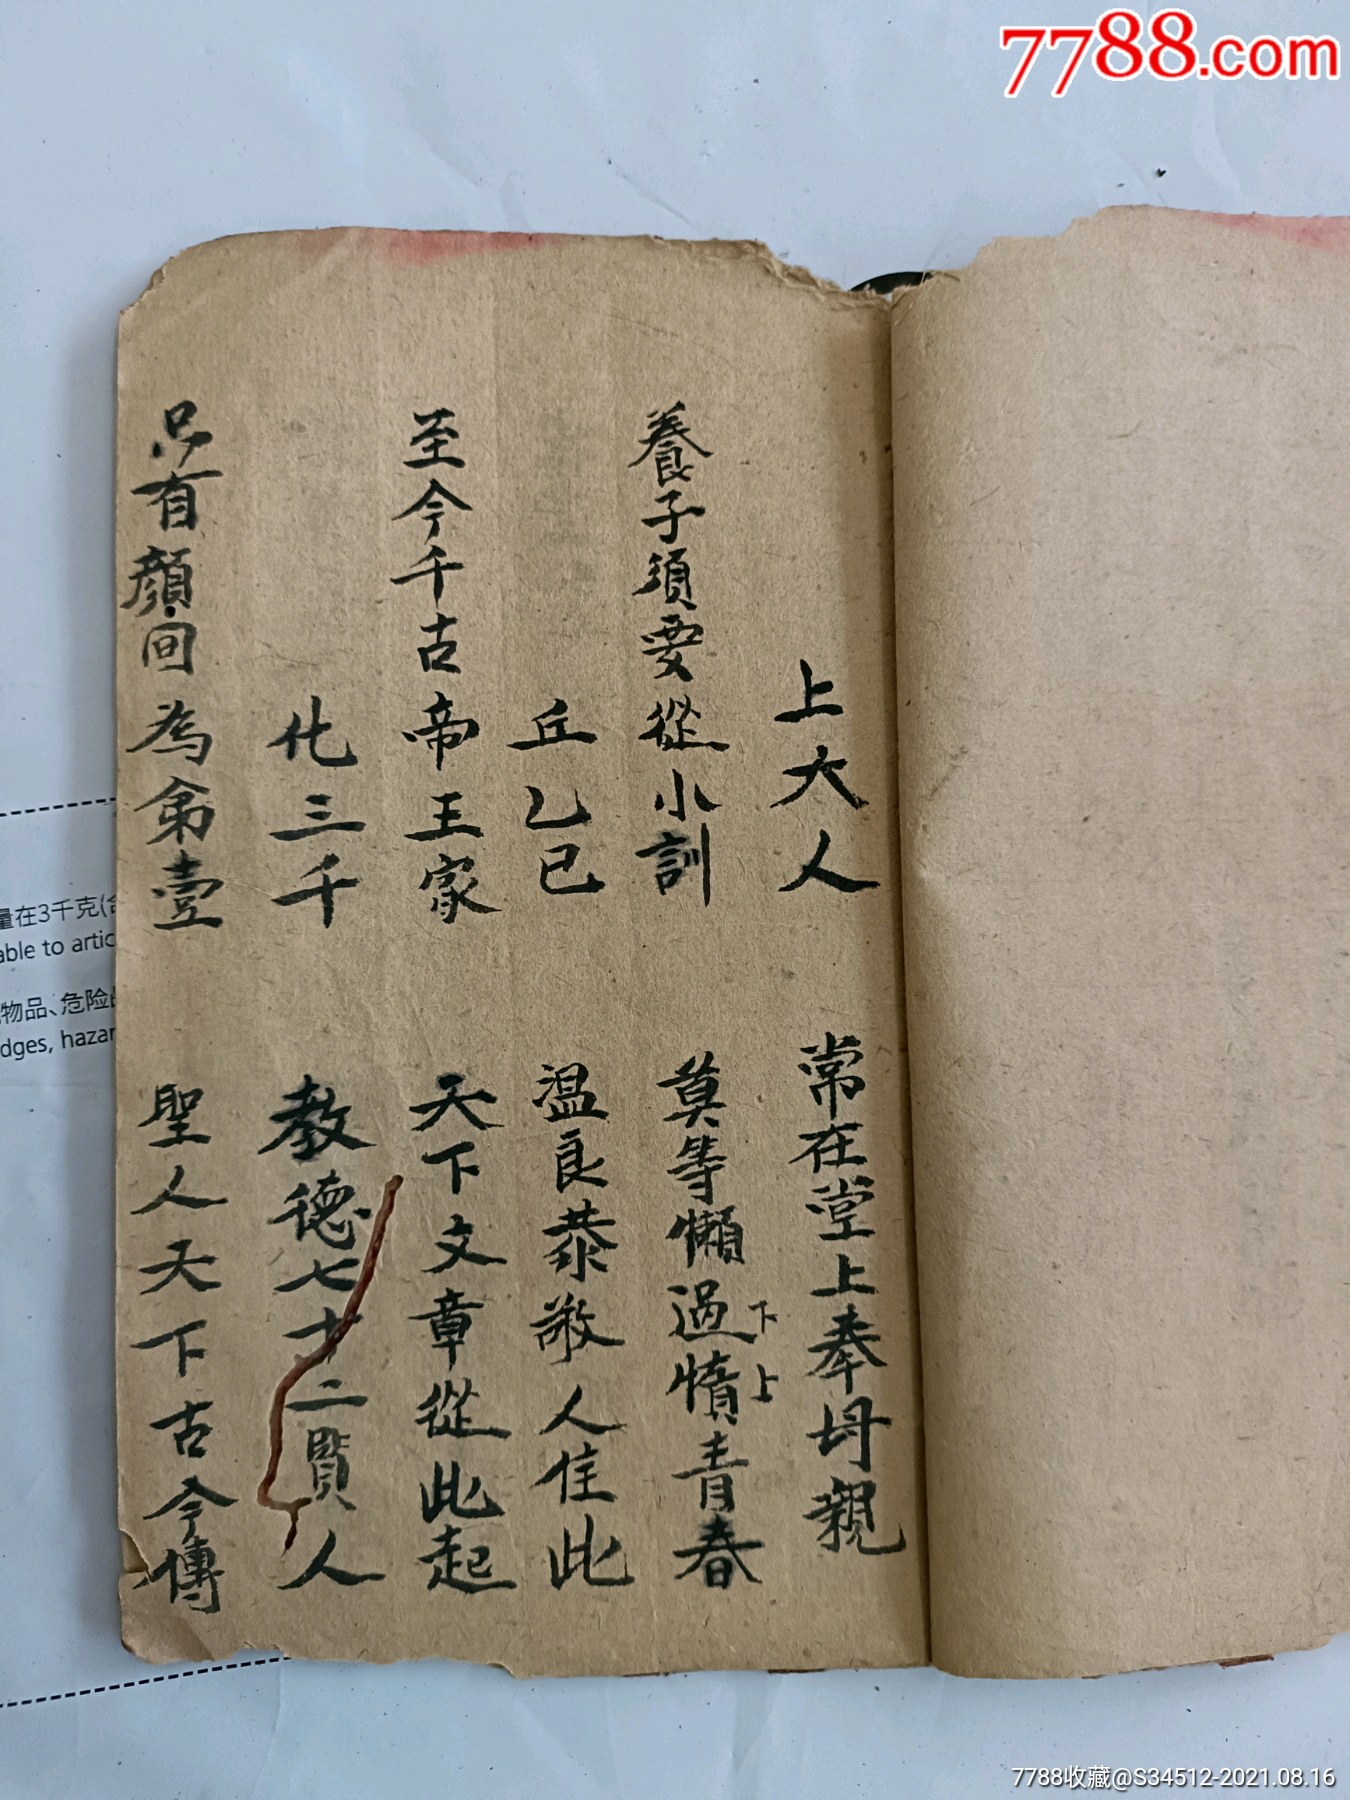 7788.com
上大人
常在堂上奉母親
養子須要從小訓
莫等懶過惰青春
下
上
丘乙已
温良恭敬人住此
至今千古帝王家
天下文章從此起
化三千
教德七十二賢人
只有顏回為第壹
聖人天下古今傳
量在3千克(合
able to artic
物品、危险品
dges, hazar
7788收藏@S34512-2021.08.16